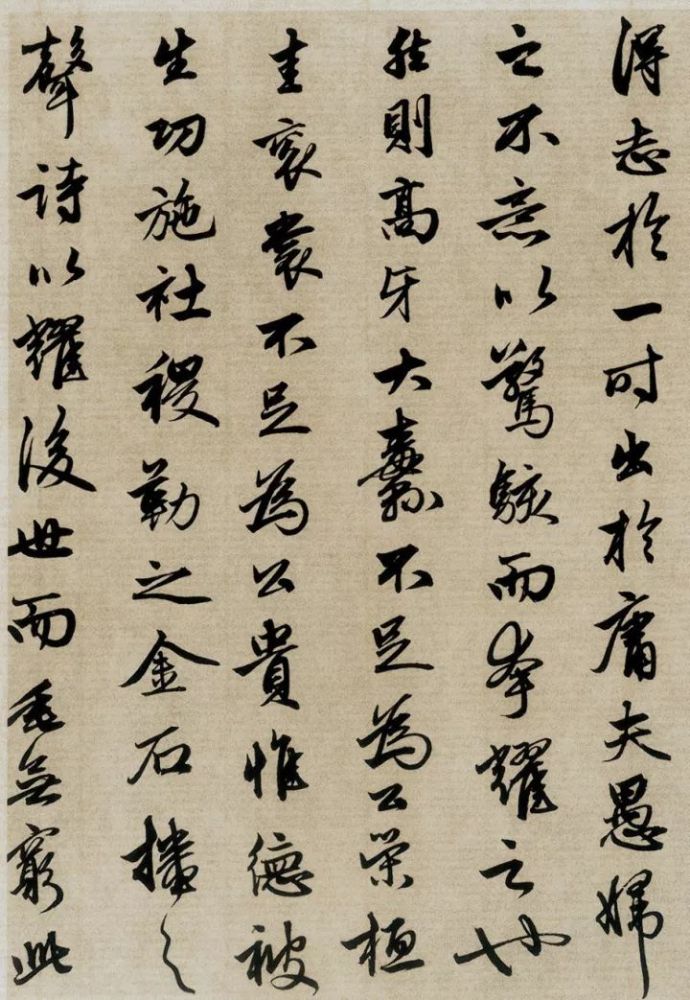 得志於一时出於庸夫愚婦
之不意以驚駭而夸耀之也
然則高牙大纛不足為公榮桓
圭衮裳不足為公貴惟德被
生功施社稷勒之金石播之
聲詩以耀後世而垂無窮此